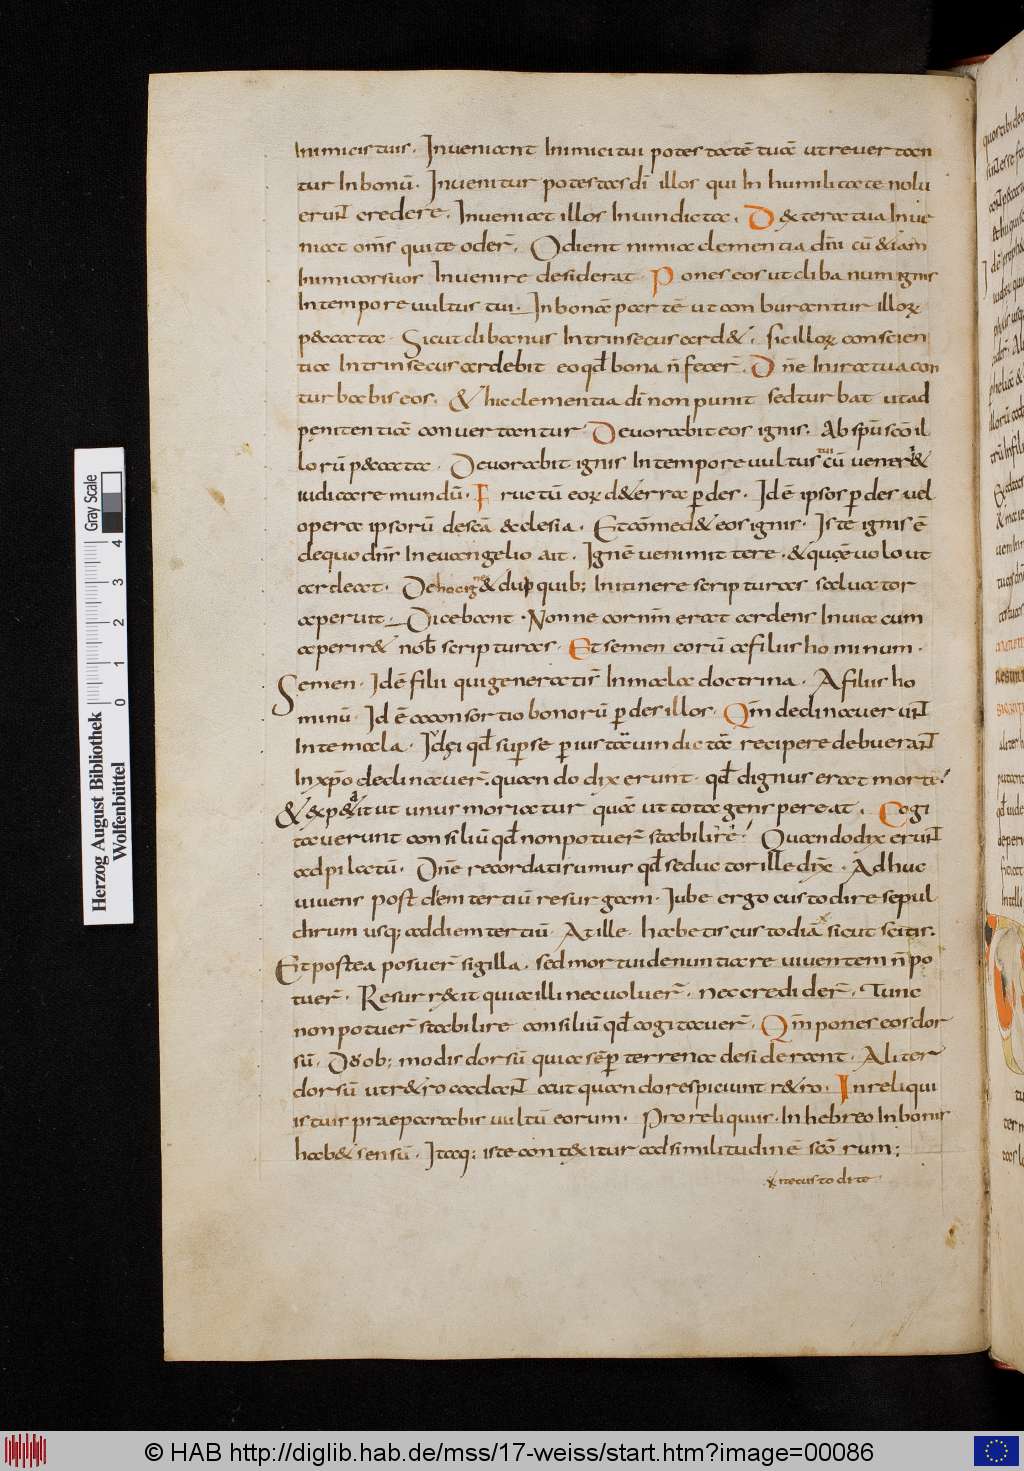 Inimicis tuis. Inueniant Inimici tui potestatē tuā ut reuertan
tur In bonū. Inuenitur potestas dī illos qui In humilitate nolu
erunt credere. Inueniat illos In uindicta. Dextera tua Inue
niat om̄s qui te oder̄. Odient nimia clementia dn̄i cū & iam
Inimicos suos Inuenire desiderat. Pones eos ut clibanum ignis
In tempore uultus tui. In bonā partē ut comburantur illoꝝ
peccata. Sicut clibanus Intrinsecus ard&, sic illoꝝ conscien
tia Intrinsecus ardebit eo qđ bona n̄ fecer̄. Dn̄e In ira tua con
turbabis eos. & hic clementia dī non punit sed turbat ut ad
pęnitentiā conuertantur Deuorabit eos ignis. Ab sp̄u sc̄o il
lorū peccata. Deuorabit ignis In tempore uultus tui cū uener&
iudicare mundū. Fructū eoꝝ de terra ꝑdes. Id ē ipsos ꝑdes uel
opera ipsorū de sc̄a ecclesia. Et comed& eos ignis. Iste ignis ē
de quo dn̄s In euangelio ait. Ignē ueni mittere. & quę uolo ut
ardeat. De hoc igne & duo quib; In itinere scripturas saluator
aperuit. Dicebant. Nonne cor nr̄m erat ardens In uia cum
aperir& nob̄ scripturas. Et semen eorū a filiis hominum.
Semen. Id ē filii qui generati s̄ In mala doctrina. A filiis ho
minū. Id ē a consortio bonorū ꝑdes illos. Qm̄ declinauerunt
In te mala. Iudęi qđ super se ꝑ iustā uindictā recipere debuerant
In xp̄o declinauer̄. quando dixerunt. qđ dignus erat morte.
& expedit ut unus moriatur quā ut tota gens pereat. Cogi
tauerunt consiliū qđ non potuer̄ stabilire. Quando dixerunt
ad pilatū. Dn̄e recordati sumus qđ seductor ille dix̄. Adhuc
uiuens post diem tertiū resurgam. Iube ergo custodire sepul
chrum usq; ad diem tertiū. At ille. habetis custodiā sicut scitis.
Et postea posuer̄ sigilla. sed mortui denuntiare uiuentem n̄ po
tuer̄. Resurrexit quia illi nec uoluer̄. nec credider̄. Tunc
non potuer̄ stabilire consiliū qđ cogitauer̄. Qm̄ pones eos dor
sū. Duob; modis dorsū quia sēp terrena desiderant. Aliter
dorsū ut retro cadant aut quando respiciunt retro. In reliqui
is tuis praeparabis uultū eorum. Pro reliquiis. In hebreo In bonis
hab& sensū. Itaq; iste contexitur ad similitudinē sc̄orum;
ite custodite
Herzog August Bibliothek
Wolfenbüttel
Gray Scale
0 1 2 3 4
© HAB http://diglib.hab.de/mss/17-weiss/start.htm?image=00086